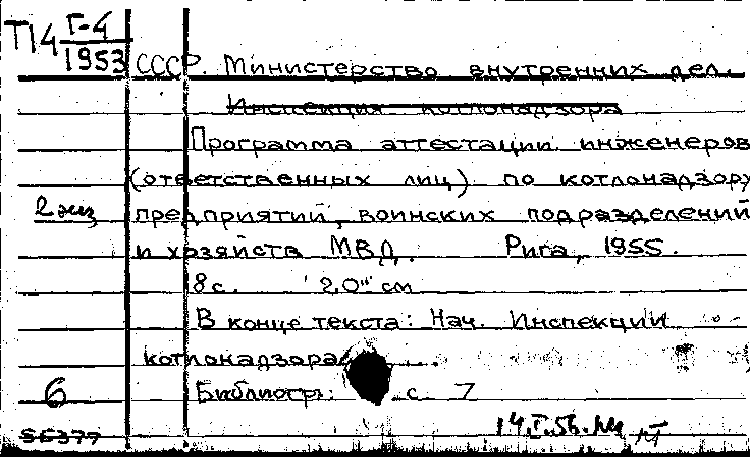 Т14 Г-4
1953
СССР. Министерство внутренних дел.
Инспекция котлонадзора
Программа аттестации инженеров
(ответственных лиц) по котлонадзору
2 экз
предприятий, воинских подразделений
и хозяйств МВД. Рига, 1955.
8 с. 20 см
В конце текста: Нач. Инспекции
котлонадзора
6
Библиогр: с. 7
14.I.56.
55377